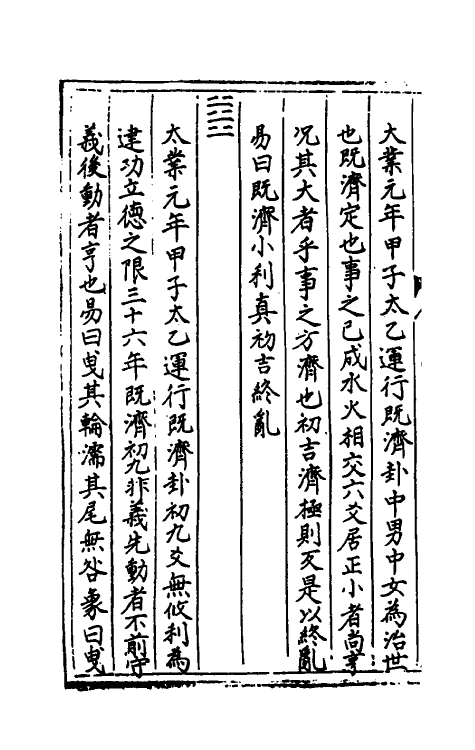 大業元年甲子太乙運行既濟卦中男中女為治世
也既濟定也事之已成水火相交六爻居正小者尚亨
况其大者乎事之方濟也初吉濟極則反是以終亂
易曰既濟小利真初吉終亂
大業元年甲子太乙運行既濟卦初九爻無攸利為
建功立德之限三十六年既濟初九非義先動者不前守
義後動者亨也易曰曵其輪濡其尾無咎象曰曵